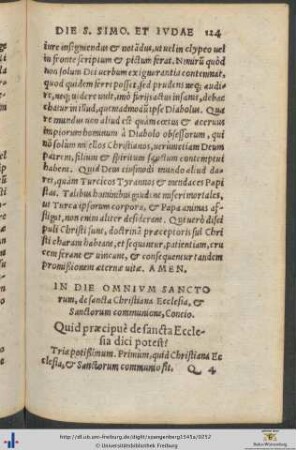 DIE S. SIMO. ET IVDAE 124
iure insigniendus et notãdus, ut uel in clypeo uel
in fronte scriptum & pictum ferat. Nimirũ quòd
non solum Dei uerbum ex ignorantia contemnat,
quod quidem ferre posset, sed prudens neq; audi=
re, neq; uidere uult, imò furijs actus insanit, debac
chatur in illud, quemadmodũ ipse Diabolus. Qua
re mundus non aliud est quàm cœtus & aceruus
impiorum hominum à Diabolo obsessorum, qui
nõ solum miselos Christianos, uerumetiam Deum
patrem, filium & spiritum sanctum contemptui
habent. Quid Deus eiusmodi mundo aliud da=
ret, quàm Turcicos Tyrannos & mendaces Papi
stas. Talibus hominibus
ut Turca ipsorum corpora, & Papa animas af=
fligat, non enim aliter desiderant. Qui uerò disci
puli Christi sunt, doctrinã præceptoris sui Chri
sti charam habeant, et sequantur, patientiam, cru
cem ferant & uincant, & consequentur tandem
promissionem æternæ uitæ. AMEN.
IN DIE OMNIVM SANCTO
rum, de sancta Christiana Ecclesia, &
Sanctorum communione, Concio.
Quid præcipuè de sancta Eccle-
sia dici potest?
Tria potissimum. Primum, quid Christiana Ec
clesia, & Sanctorum communio sit.
Q 4
http://dl.ub.uni-freiburg.de/diglit/spangenberg1545a/0252
© Universitätsbibliothek Freiburg
Baden-Württemberg